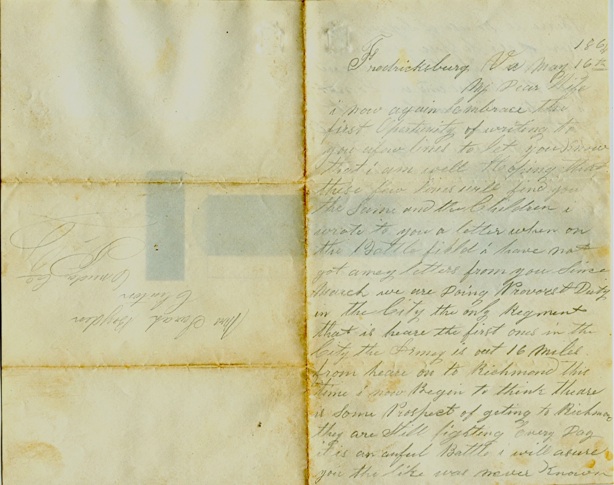 186
Fredricksburg Va May 16th
My Dear Wife
i now again Embrace the
first Opertunity of writing to
you a few lines to let you know
that i am well Hopeing that
these few lines will find you
the Same and the Children i
wrote to you a letter when on
the Battle field i have not
got amey letters from you Since
March we are Doing Provorst Duty
in the City the only Regment
that is heare the first ones in the
City the Armey is out 16 Miles
from heare on to Richmond this
time i now Begin to think theare
is some Prospect of geting to Richmon
they are Still fighting Every Day
it is an awful Battle i will asure
you the like was never Known
Mrs Sarah
Clinton